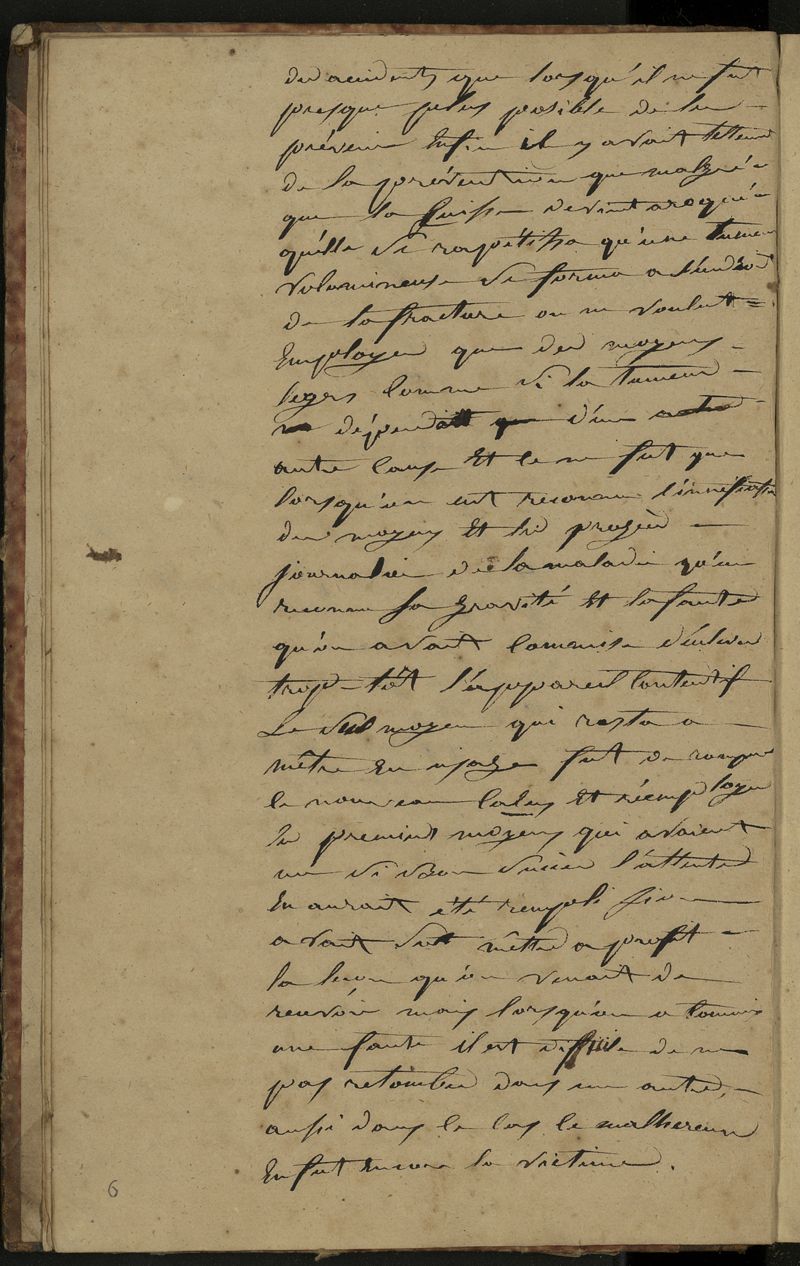 des accidents que lorsqu'il ne fut
presque plus posible de les
prévenir Enfin il y avait tellement
de la prévention que malgré
que la Cuisse devint arequé
qu'elle se rapétissa qu'une tumeur
volumineuse se forma a l'endroit
de la fracture on ne voulut
Employer que des moyens
legers Comme si la tumeur
ne dépendait que d'une
autre Cause Et ce ne fut que
lorsqu'on eut reconnu l'innefficassité
des moyens Et le progrès
journalier de la maladie qu'on
reconnu sa gravité Et la faute
qu'on avait Commise d'enlever
trop-tôt l'appareil Contentif
Le seul moyen qui resta a
mêttre En usage fut de rompre
le nouveau Calus Et réemployer
les premiers moyens qui avaient
eu si bon succès l'attente
En aurait été rempli si on
avait sut mêttre a profit
la leçon qu'on venait de
recevoir mais lorsqu'on a Commis
une faute il est difficile de ne
pas retomber dans une autre,
aussi dans le Cas le malhereux
En fut Encore la victime.
6